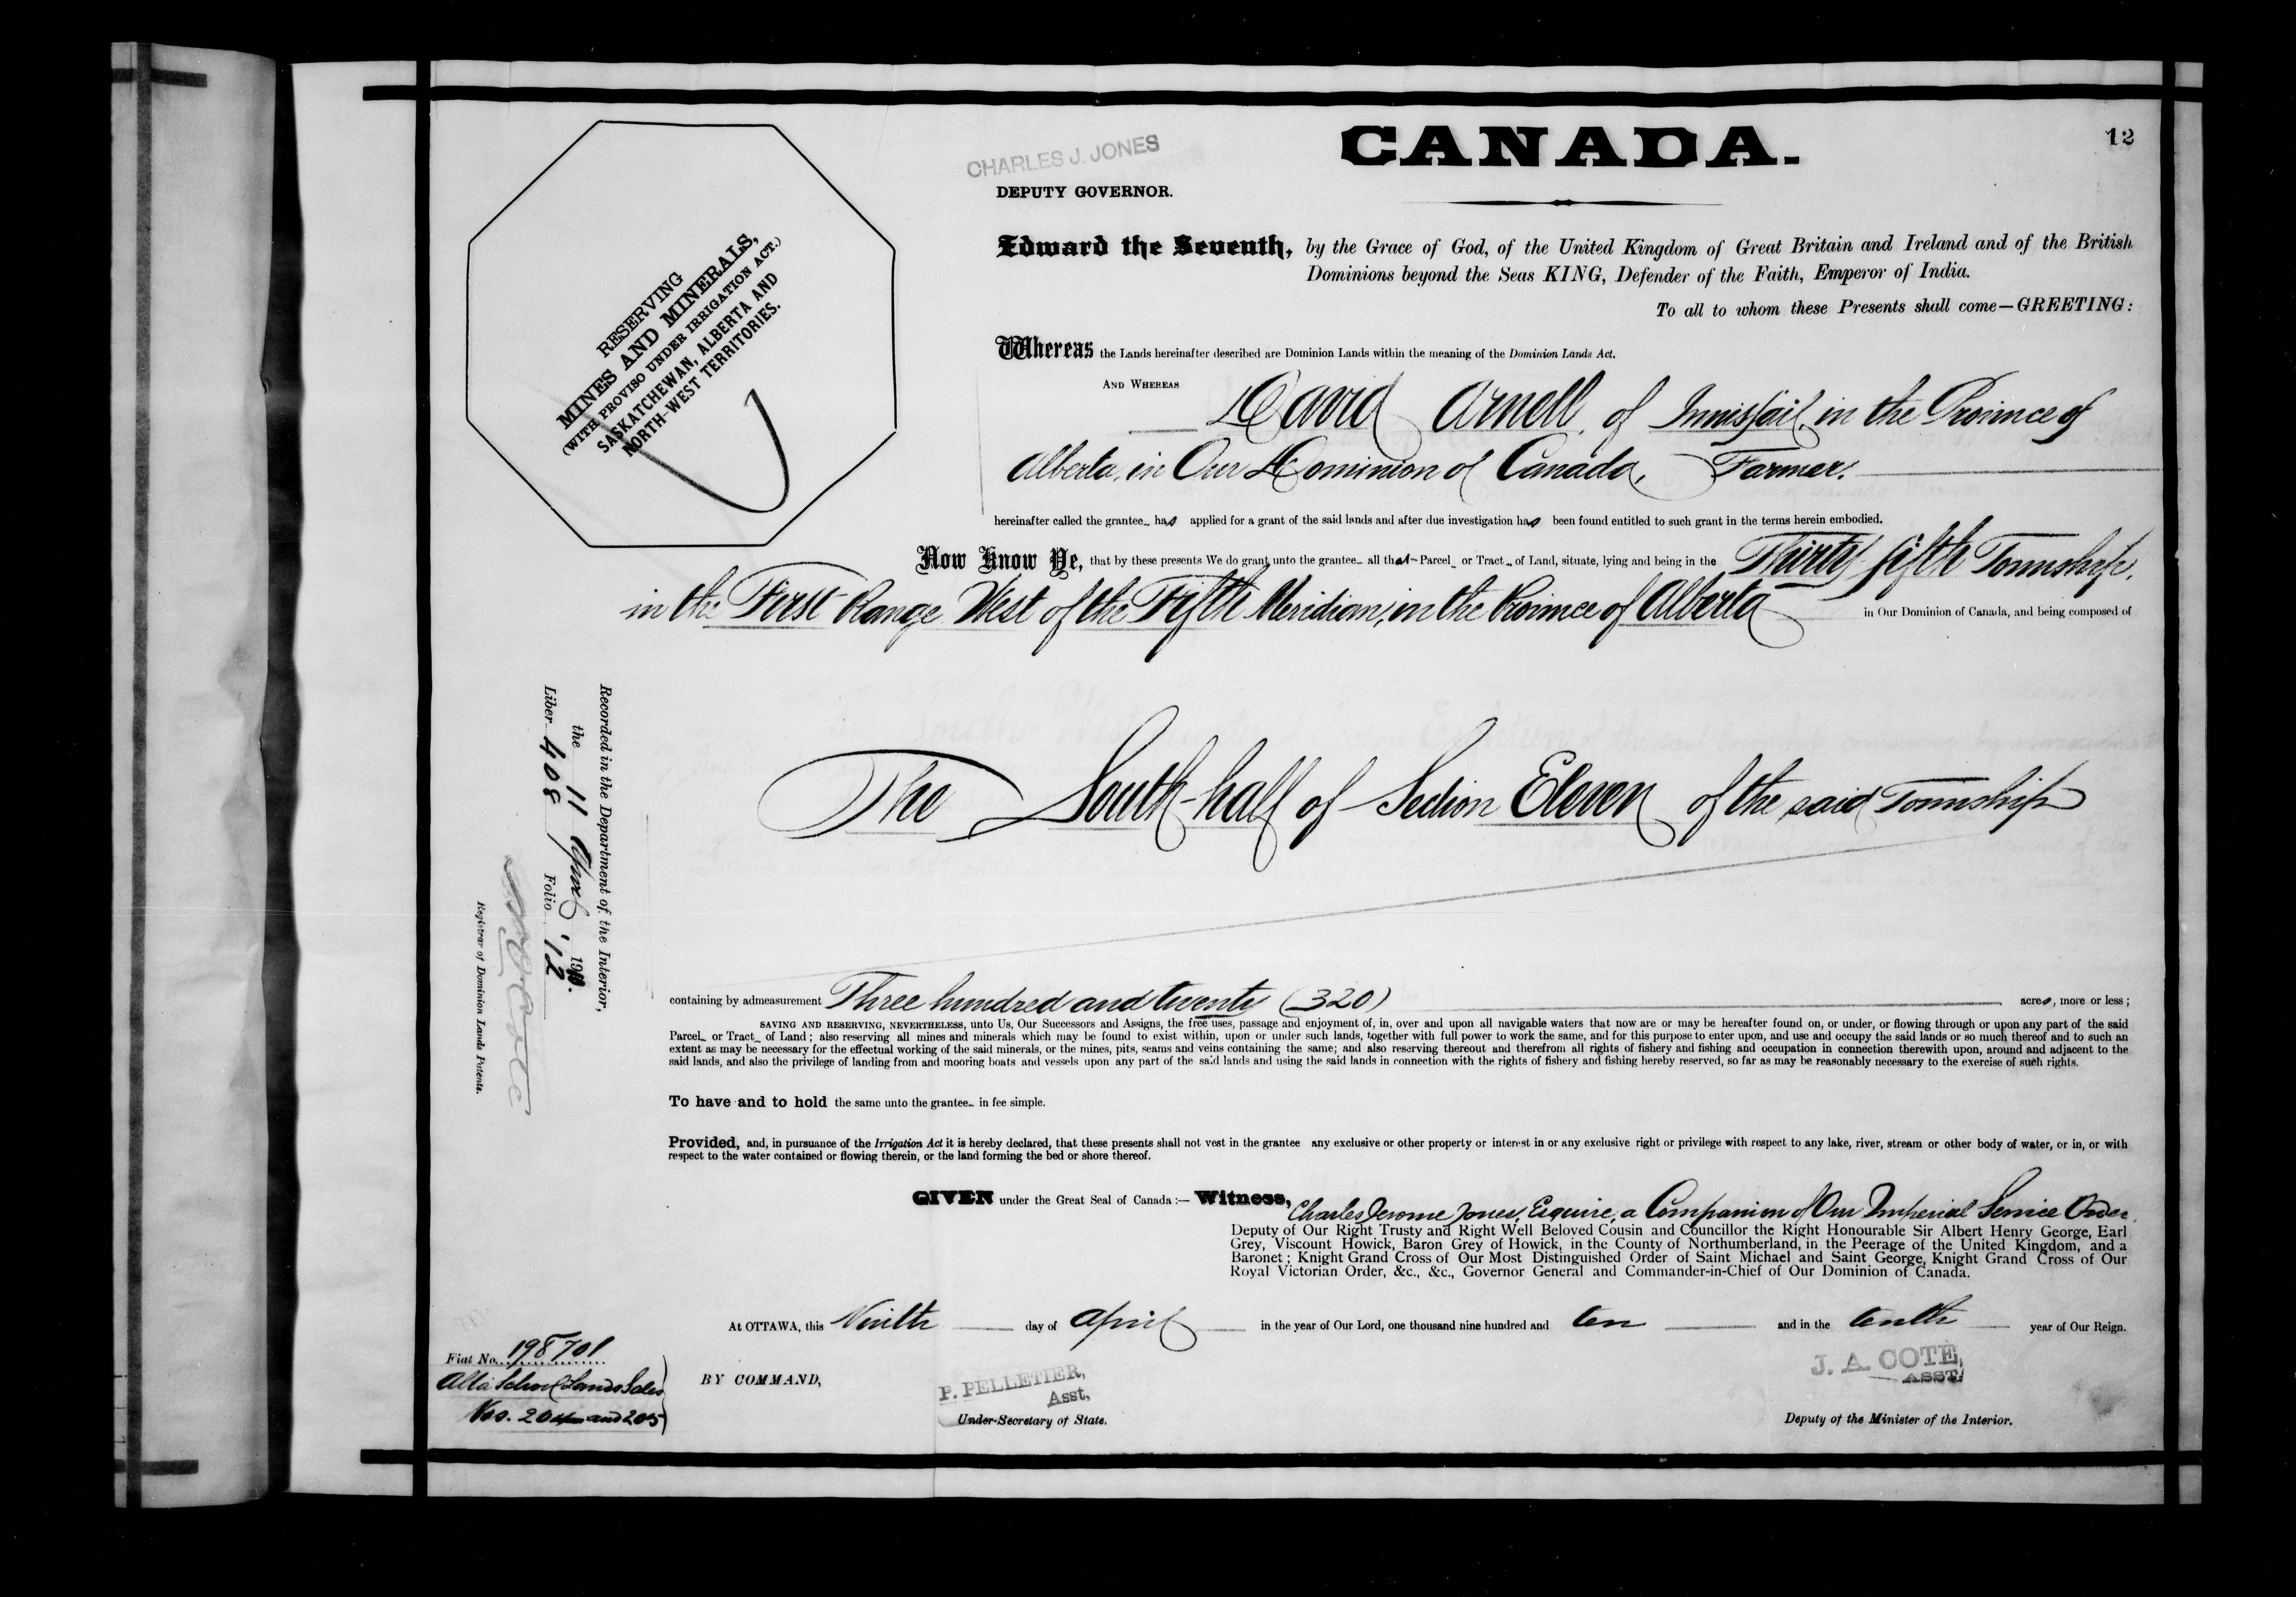 12
CANADA.
CHARLES J. JONES
DEPUTY GOVERNOR.
RESERVING
MINES AND MINERALS,
(WITH PROVISO UNDER IRRIGATION ACT.)
SASKATCHEWAN, ALBERTA AND
NORTH-WEST TERRITORIES.
Edward the Seventh, by the Grace of God, of the United Kingdom of Great Britain and Ireland and of the British
Dominions beyond the Seas KING, Defender of the Faith, Emperor of India.
To all to whom these Presents shall come—GREETING:
Whereas the Lands hereinafter described are Dominion Lands within the meaning of the Dominion Lands Act.
AND WHEREAS
David Arnell, of Innisfail, in the Province of
Alberta, in Our Dominion of Canada, Farmer.
hereinafter called the grantee has applied for a grant of the said lands and after due investigation has been found entitled to such grant in the terms herein embodied.
Now Know Ye, that by these presents We do grant unto the grantee all that Parcel or Tract of Land, situate, lying and being in the Thirty-fifth Township,
in the First Range West of the Fifth Meridian, in the Province of Alberta in Our Dominion of Canada, and being composed of
The South-half of Section Eleven of the said Township
containing by admeasurement Three hundred and twenty (320) acres, more or less;
SAVING AND RESERVING, NEVERTHELESS, unto Us, Our Successors and Assigns, the free uses, passage and enjoyment of, in, over and upon all navigable waters that now are or may be hereafter found on, or under, or flowing through or upon any part of the said
Parcel or Tract of Land; also reserving all mines and minerals which may be found to exist within, upon or under such lands, together with full power to work the same, and for this purpose to enter upon, and use and occupy the said lands or so much thereof and to such an
extent as may be necessary for the effectual working of the said minerals, or the mines, pits, seams and veins containing the same; and also reserving thereout and therefrom all rights of fishery and fishing and occupation in connection therewith upon, around and adjacent to the
said lands, and also the privilege of landing from and mooring boats and vessels upon any part of the said lands and using the said lands in connection with the rights of fishery and fishing hereby reserved, so far as may be reasonably necessary to the exercise of such rights.
To have and to hold the same unto the grantee in fee simple.
Provided, and, in pursuance of the Irrigation Act it is hereby declared, that these presents shall not vest in the grantee any exclusive or other property or interest in or any exclusive right or privilege with respect to any lake, river, stream or other body of water, or in, or with
respect to the water contained or flowing therein, or the land forming the bed or shore thereof.
GIVEN under the Great Seal of Canada:— Witness, Charles Jerome Jones, Esquire, a Companion of Our Imperial Service Order,
Deputy of Our Right Trusty and Right Well Beloved Cousin and Councillor the Right Honourable Sir Albert Henry George, Earl
Grey, Viscount Howick, Baron Grey of Howick, in the County of Northumberland, in the Peerage of the United Kingdom, and a
Baronet; Knight Grand Cross of Our Most Distinguished Order of Saint Michael and Saint George, Knight Grand Cross of Our
Royal Victorian Order, &c., &c., Governor General and Commander-in-Chief of Our Dominion of Canada.
At OTTAWA, this Ninth day of April in the year of Our Lord, one thousand nine hundred and ten and in the tenth year of Our Reign.
BY COMMAND,
P. PELLETIER,
Asst,
Under-Secretary of State.
J. A. COTE,
ASST.
Deputy of the Minister of the Interior.
Recorded in the Department of the Interior,
the 11 April 1910.
Liber 408 Folio 12
Registrar of Dominion Lands Patents.
Fiat No. 198701
Alta School Lands Sales
Nos. 204 and 205